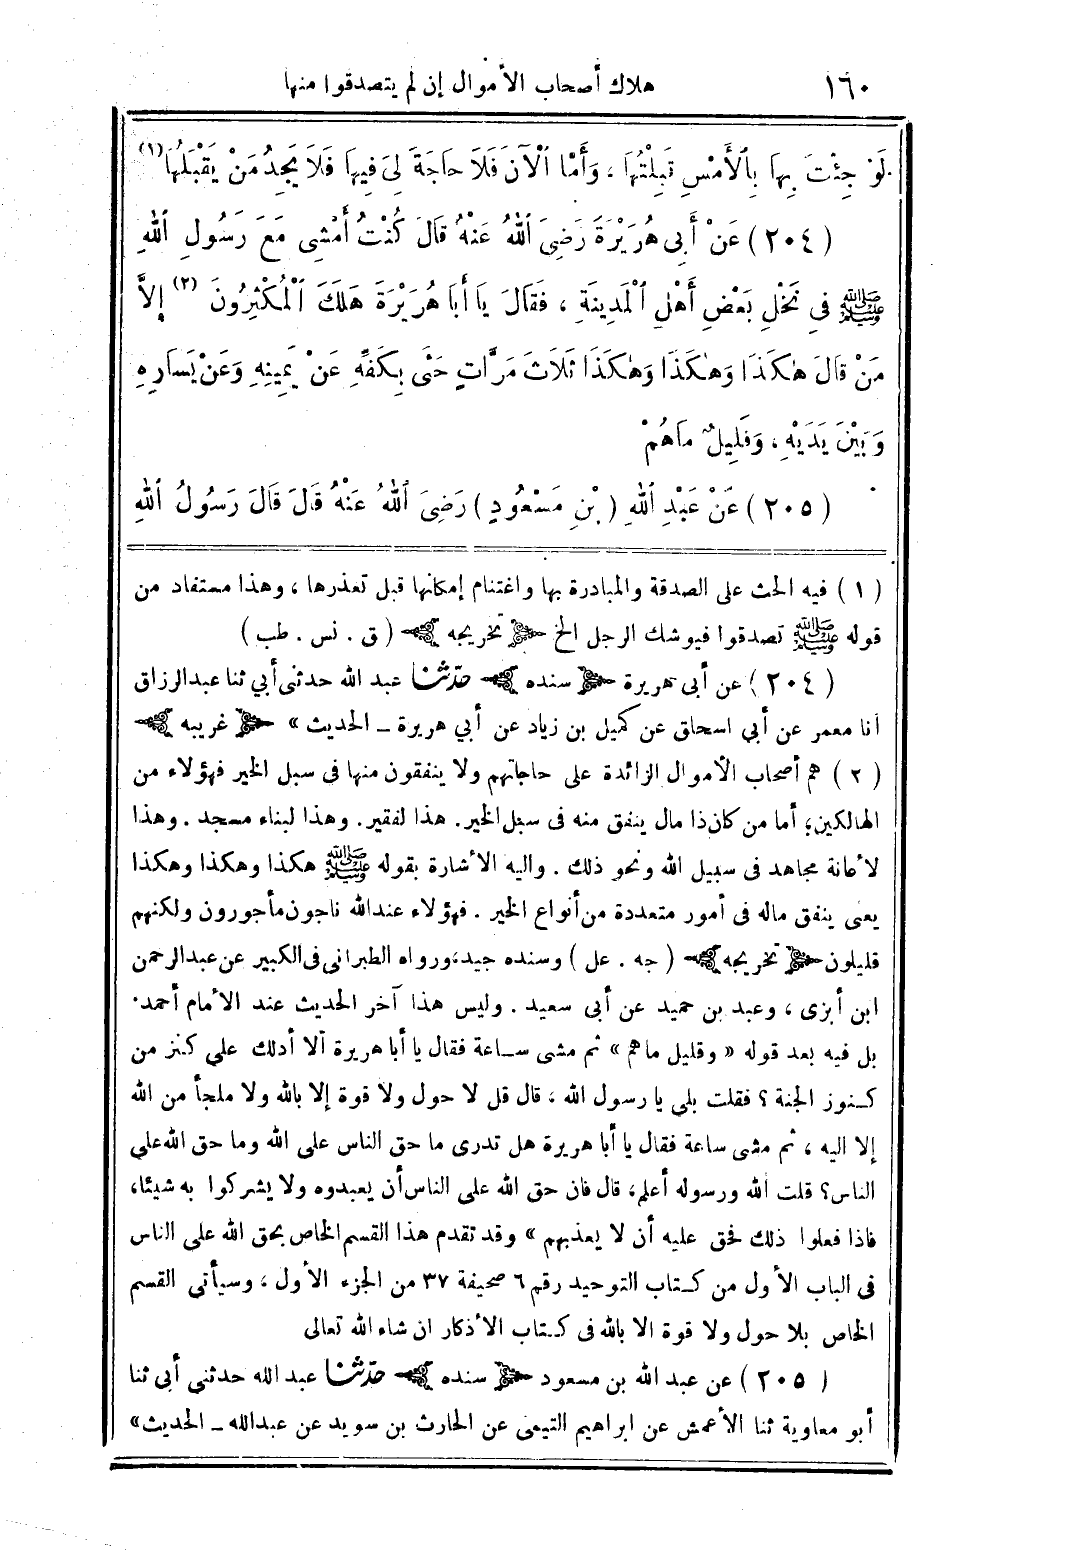 ١٦٠ هلاك أصحاب الأموال إن لم يتصدقوا منها
لَوْ جِئْتَ بِهَا بِٱلْأَمْسِ قَبِلْتُهَا ، وَأَمَّا ٱلْآنَ فَلَا حَاجَةَ لِىَ فِيهَا فَلَا يَجِدُ مَنْ يَقْبَلُهَا (١)
( ٢٠٤ ) عَنْ أَبِى هُرَيْرَةَ رَضِىَ ٱللهُ عَنْهُ قَالَ كُنْتُ أَمْشِى مَعَ رَسُولِ ٱللهِ
ﷺ فِى نَخْلٍ بَعْضِ أَهْلِ ٱلْمَدِينَةِ ، فَقَالَ يَا أَبَا هُرَيْرَةَ هَلَكَ ٱلْمُكْثِرُونَ (٢) إِلَّا
مَنْ قَالَ هٰكَذَا وَهٰكَذَا وَهٰكَذَا ثَلَاثَ مَرَّاتٍ حَثَى بِكَفِّهِ عَنْ يَمِينِهِ وَعَنْ يَسَارِهِ
وَبَيْنَ يَدَيْهِ ، وَقَلِيلٌ مَاهُمْ
( ٢٠٥ ) عَنْ عَبْدِ ٱللهِ ( بْنِ مَسْعُودٍ ) رَضِىَ ٱللهُ عَنْهُ قَالَ قَالَ رَسُولُ ٱللهِ
( ١ ) فيه الحث على الصدقة والمبادرة بها واغتنام إمكانها قبل تعذرها ، وهذا مستفاد من
قوله ﷺ تصدقوا فيوشك الرجل الخ ﴿ تخريجه ﴾ ( ق . نس . طب )
( ٢٠٤ ) عن أبى هريرة ﴿ سنده ﴾ حدّثنا عبد الله حدثنى أبي ثنا عبدالرزاق
أنا معمر عن أبي اسحاق عن كميل بن زياد عن أبي هريرة ــ الحديث » ﴿ غريبه ﴾
( ٢ ) هم أصحاب الأموال الزائدة على حاجاتهم ولا ينفقون منها فى سبل الخير فهؤلاء من
الهالكين؛ أما من كان ذا مال ينفق منه فى سبل الخير . هذا لفقير . وهذا لبناء مسجد . وهذا
لأعانة مجاهد فى سبيل الله ونحو ذلك . واليه الأشارة بقوله ﷺ هكذا وهكذا وهكذا
يعنى ينفق ماله فى أمور متعددة من أنواع الخير . فهؤلاء عندالله ناجون مأجورون ولكنهم
قليلون ﴿ تخريجه ﴾ ( جه . عل ) وسنده جيد، ورواه الطبرانى فى الكبير عن عبدالرحمن
ابن أبزى ، وعبد بن حميد عن أبى سعيد . وليس هذا آخر الحديث عند الأمام أحمد.
بل فيه بعد قوله « وقليل ماهم » ثم مشى ساعة فقال يا أبا هريرة ألا أدلك على كنز من
كنوز الجنة ؟ فقلت بلى يا رسول الله ، قال قل لا حول ولا قوة إلا بالله ولا ملجأ من الله
إلا اليه ، ثم مشى ساعة فقال يا أبا هريرة هل تدرى ما حق الناس على الله وما حق الله على
الناس؟ قلت الله ورسوله أعلم، قال فان حق الله على الناس أن يعبدوه ولا يشركوا به شيئا،
فاذا فعلوا ذلك فحق عليه أن لا يعذبهم » وقد تقدم هذا القسم الخاص بحق الله على الناس
فى الباب الأول من كتاب التوحيد رقم ٦ صحيفة ٣٧ من الجزء الأول ، وسيأتى القسم
الخاص بلا حول ولا قوة الا بالله فى كتاب الأذكار ان شاء الله تعالى
( ٢٠٥ ) عن عبد الله بن مسعود ﴿ سنده ﴾ حدّثنا عبد الله حدثني أبي ثنا
أبو معاوية ثنا الأعمش عن ابراهيم التيمى عن الحارث بن سويد عن عبدالله ــ الحديث »